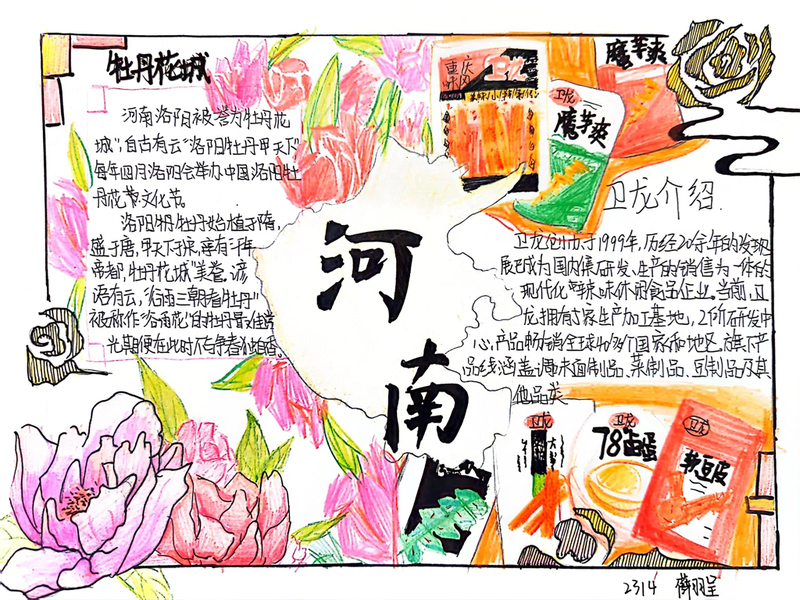 牡丹花城
河南洛阳被誉为牡丹花
城",自古有云"洛阳牡丹甲天下"
每年四月洛阳会举办中国洛阳牡
丹花节文化节。
洛阳牡丹始植于隋,
盛于唐,甲天下于宋,享有"千年
帝都,牡丹花城"美誉,谚
语有云,"谷雨三朝看牡丹"
被称作"谷雨花"的牡丹最佳赏
光期便在此时
河
南
重庆
风味
卫龙
魔芋爽
魔芋爽
卫龙介绍
卫龙创市于1999年,历经20余年的发现
展已成为国内集研发、生产的销售为一体的
现代化辣味休闲食品企业。当前,卫
龙拥有6家生产加工基地,2个研发中
心,产品畅销全球40多个国家和地区,旗下产
品线涵盖调味面制品、菜制品、豆制品及其
他品类
卫龙
卫龙
78卤蛋
卫龙
软豆皮
2314